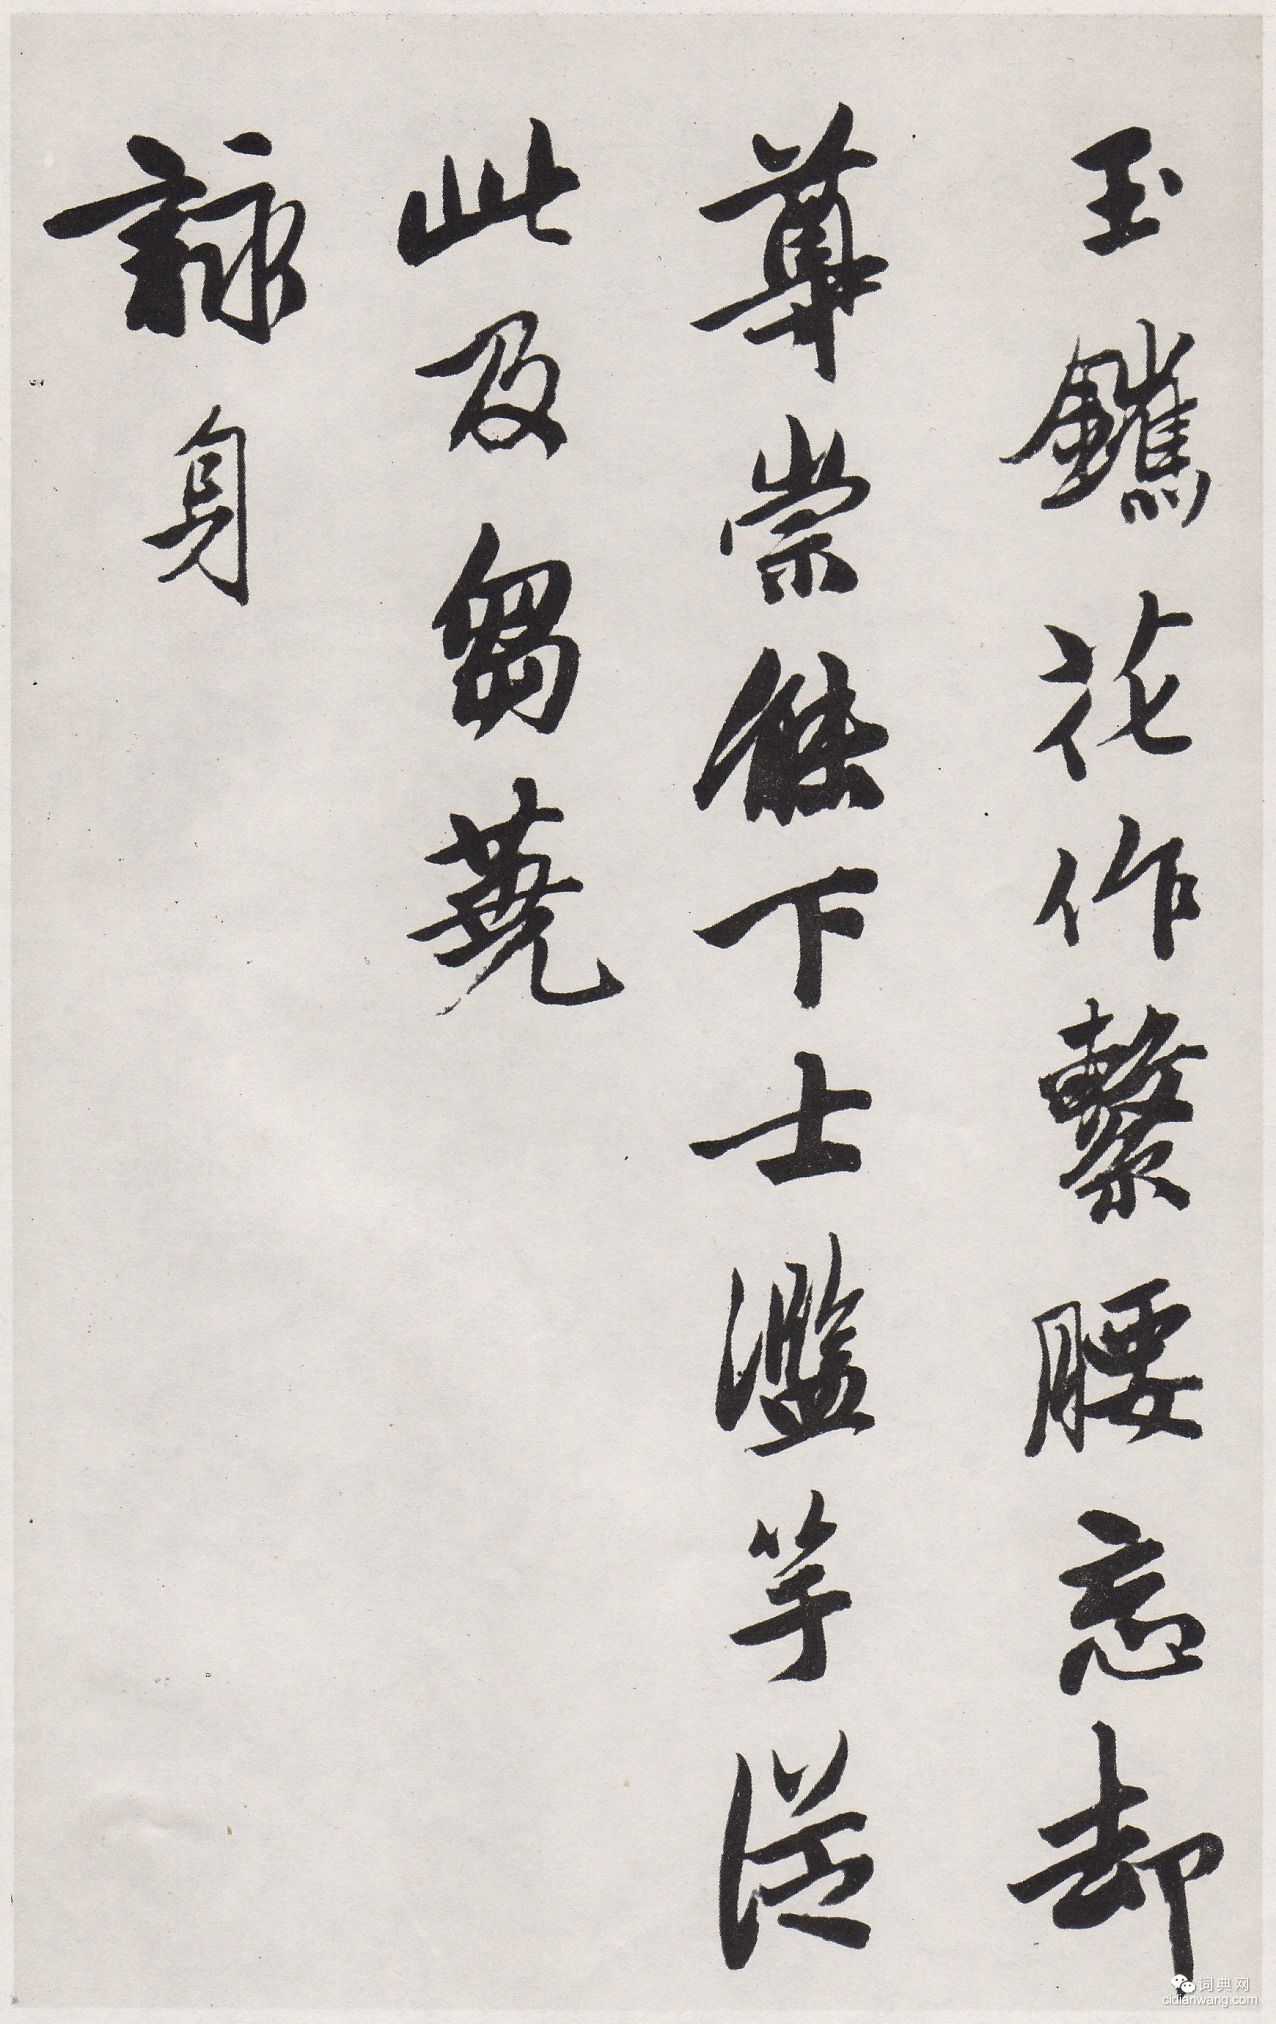 玉鑣花作繫腰忘却
尊崇餘下士濫竽從
此及芻蕘
詠身
词典网
cidianwang.com